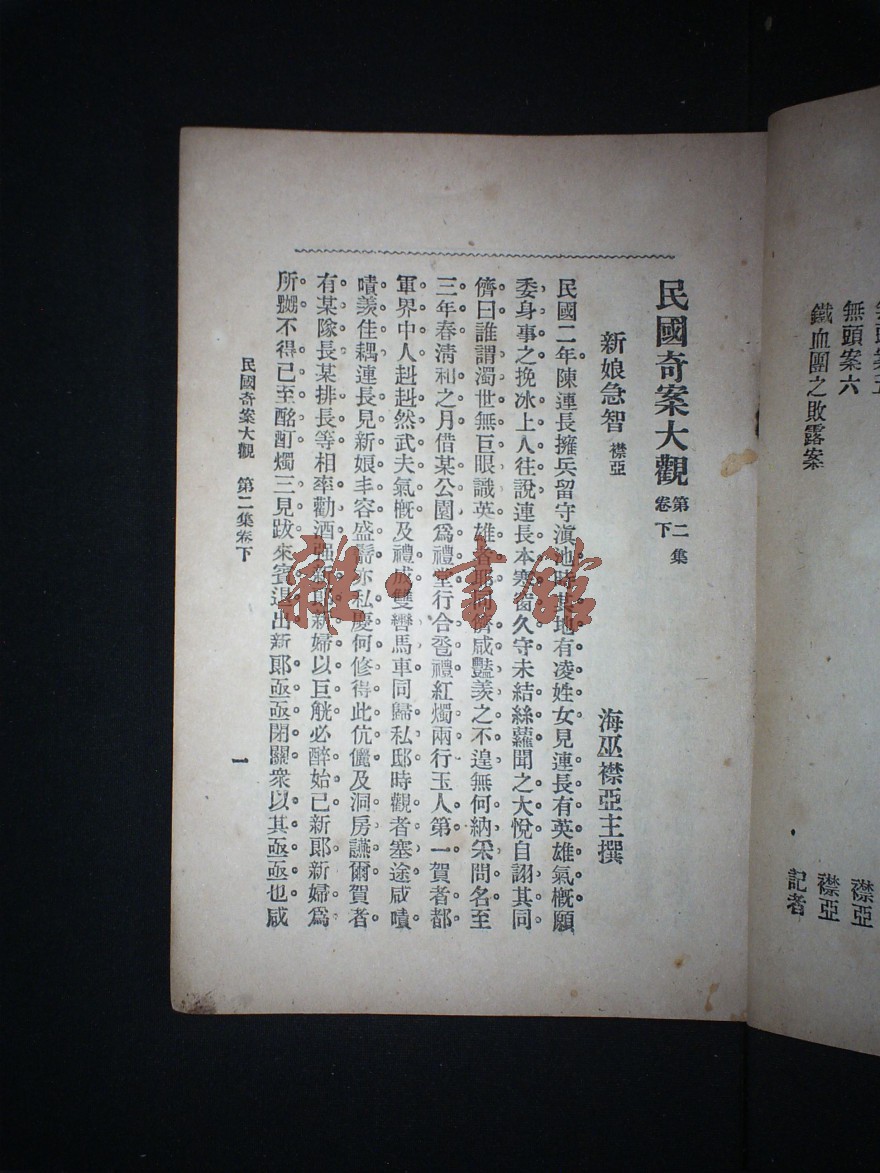 無頭案六
鐵血團之敗露案
襟亞
襟亞
記者
民國奇案大觀 第二集 卷下
海巫襟亞主撰
新娘急智 襟亞
民國二年陳連長擁兵留守滇池時其地有凌姓女見連長有英雄氣概願
委身事之挽冰上人往說連長本寒窗久守未結絲蘿聞之大悅自詡其同
儕曰誰謂濁世無巨眼識英雄者耶同儕咸豔羨之不遑無何納采問名至
三年春清和之月借某公園爲禮堂行合卺禮紅燭兩行玉人第一賀者都
軍界中人赳赳然武夫氣概及禮成雙轡馬車同歸私邸時觀者塞途咸嘖
嘖羨佳耦連長見新娘丰容盛鬋亦私慶何修得此伉儷及洞房讌爾賀者
有某隊長某排長等相率勸酒强新郎新婦以巨觥必醉始已新郎新婦爲
所嬲不得已至酩酊燭三見跋來賓退出新郎亟亟閉關衆以其亟亟也咸
民國奇案大觀 第二集卷下
一
雜·書館